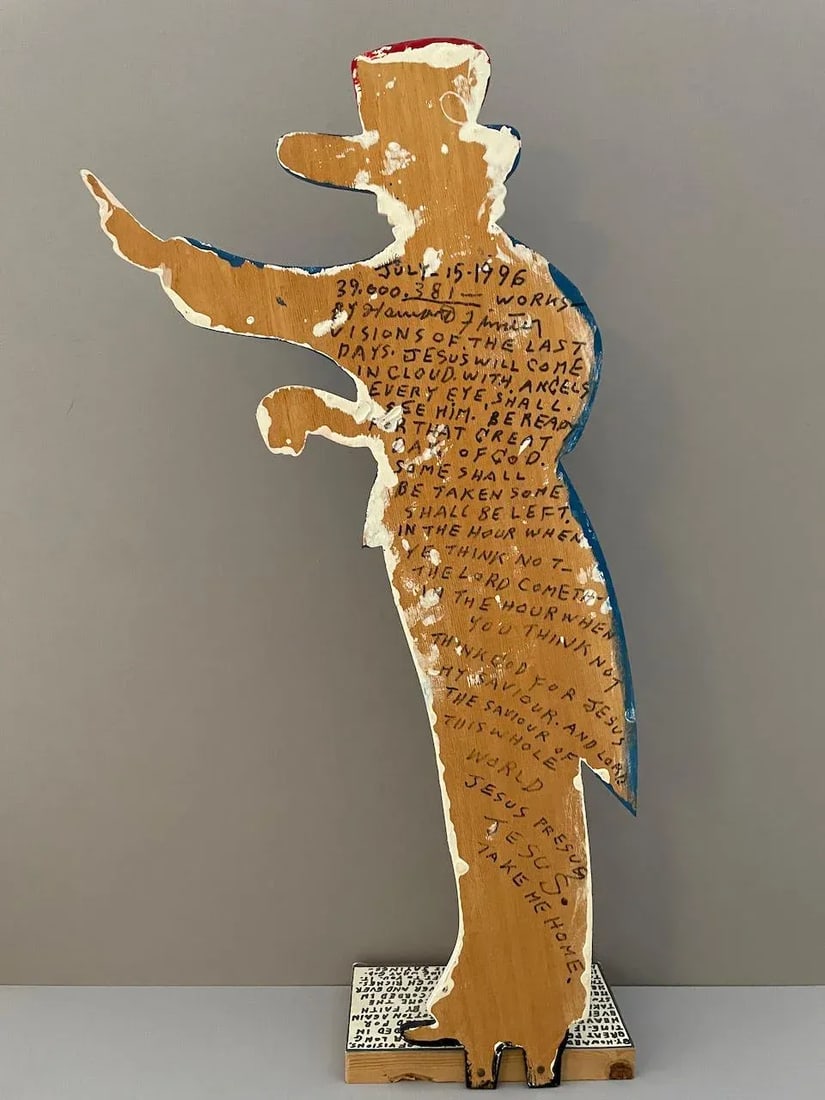 JULY-15-1996
39.000.381 — WORKS
BY Howard Finster
VISIONS OF THE LAST
DAYS. JESUS WILL COME
IN CLOUD. WITH ANGELS
EVERY EYE SHALL.
SEE HIM. BE READY
FOR THAT GREAT
DAY OF GOD.
SOME SHALL
BE TAKEN SOME
SHALL BE LEFT.
IN THE HOUR WHEN
YE THINK NOT-
THE LORD COMETH-
IN THE HOUR WHEN
YOU THINK NOT
THINK GOD FOR JESUS
MY SAVIOUR. AND LORD
THE SAVIOUR OF
THIS WHOLE
WORLD
JESUS PRESUS
JESUS.
TAKE ME HOME.